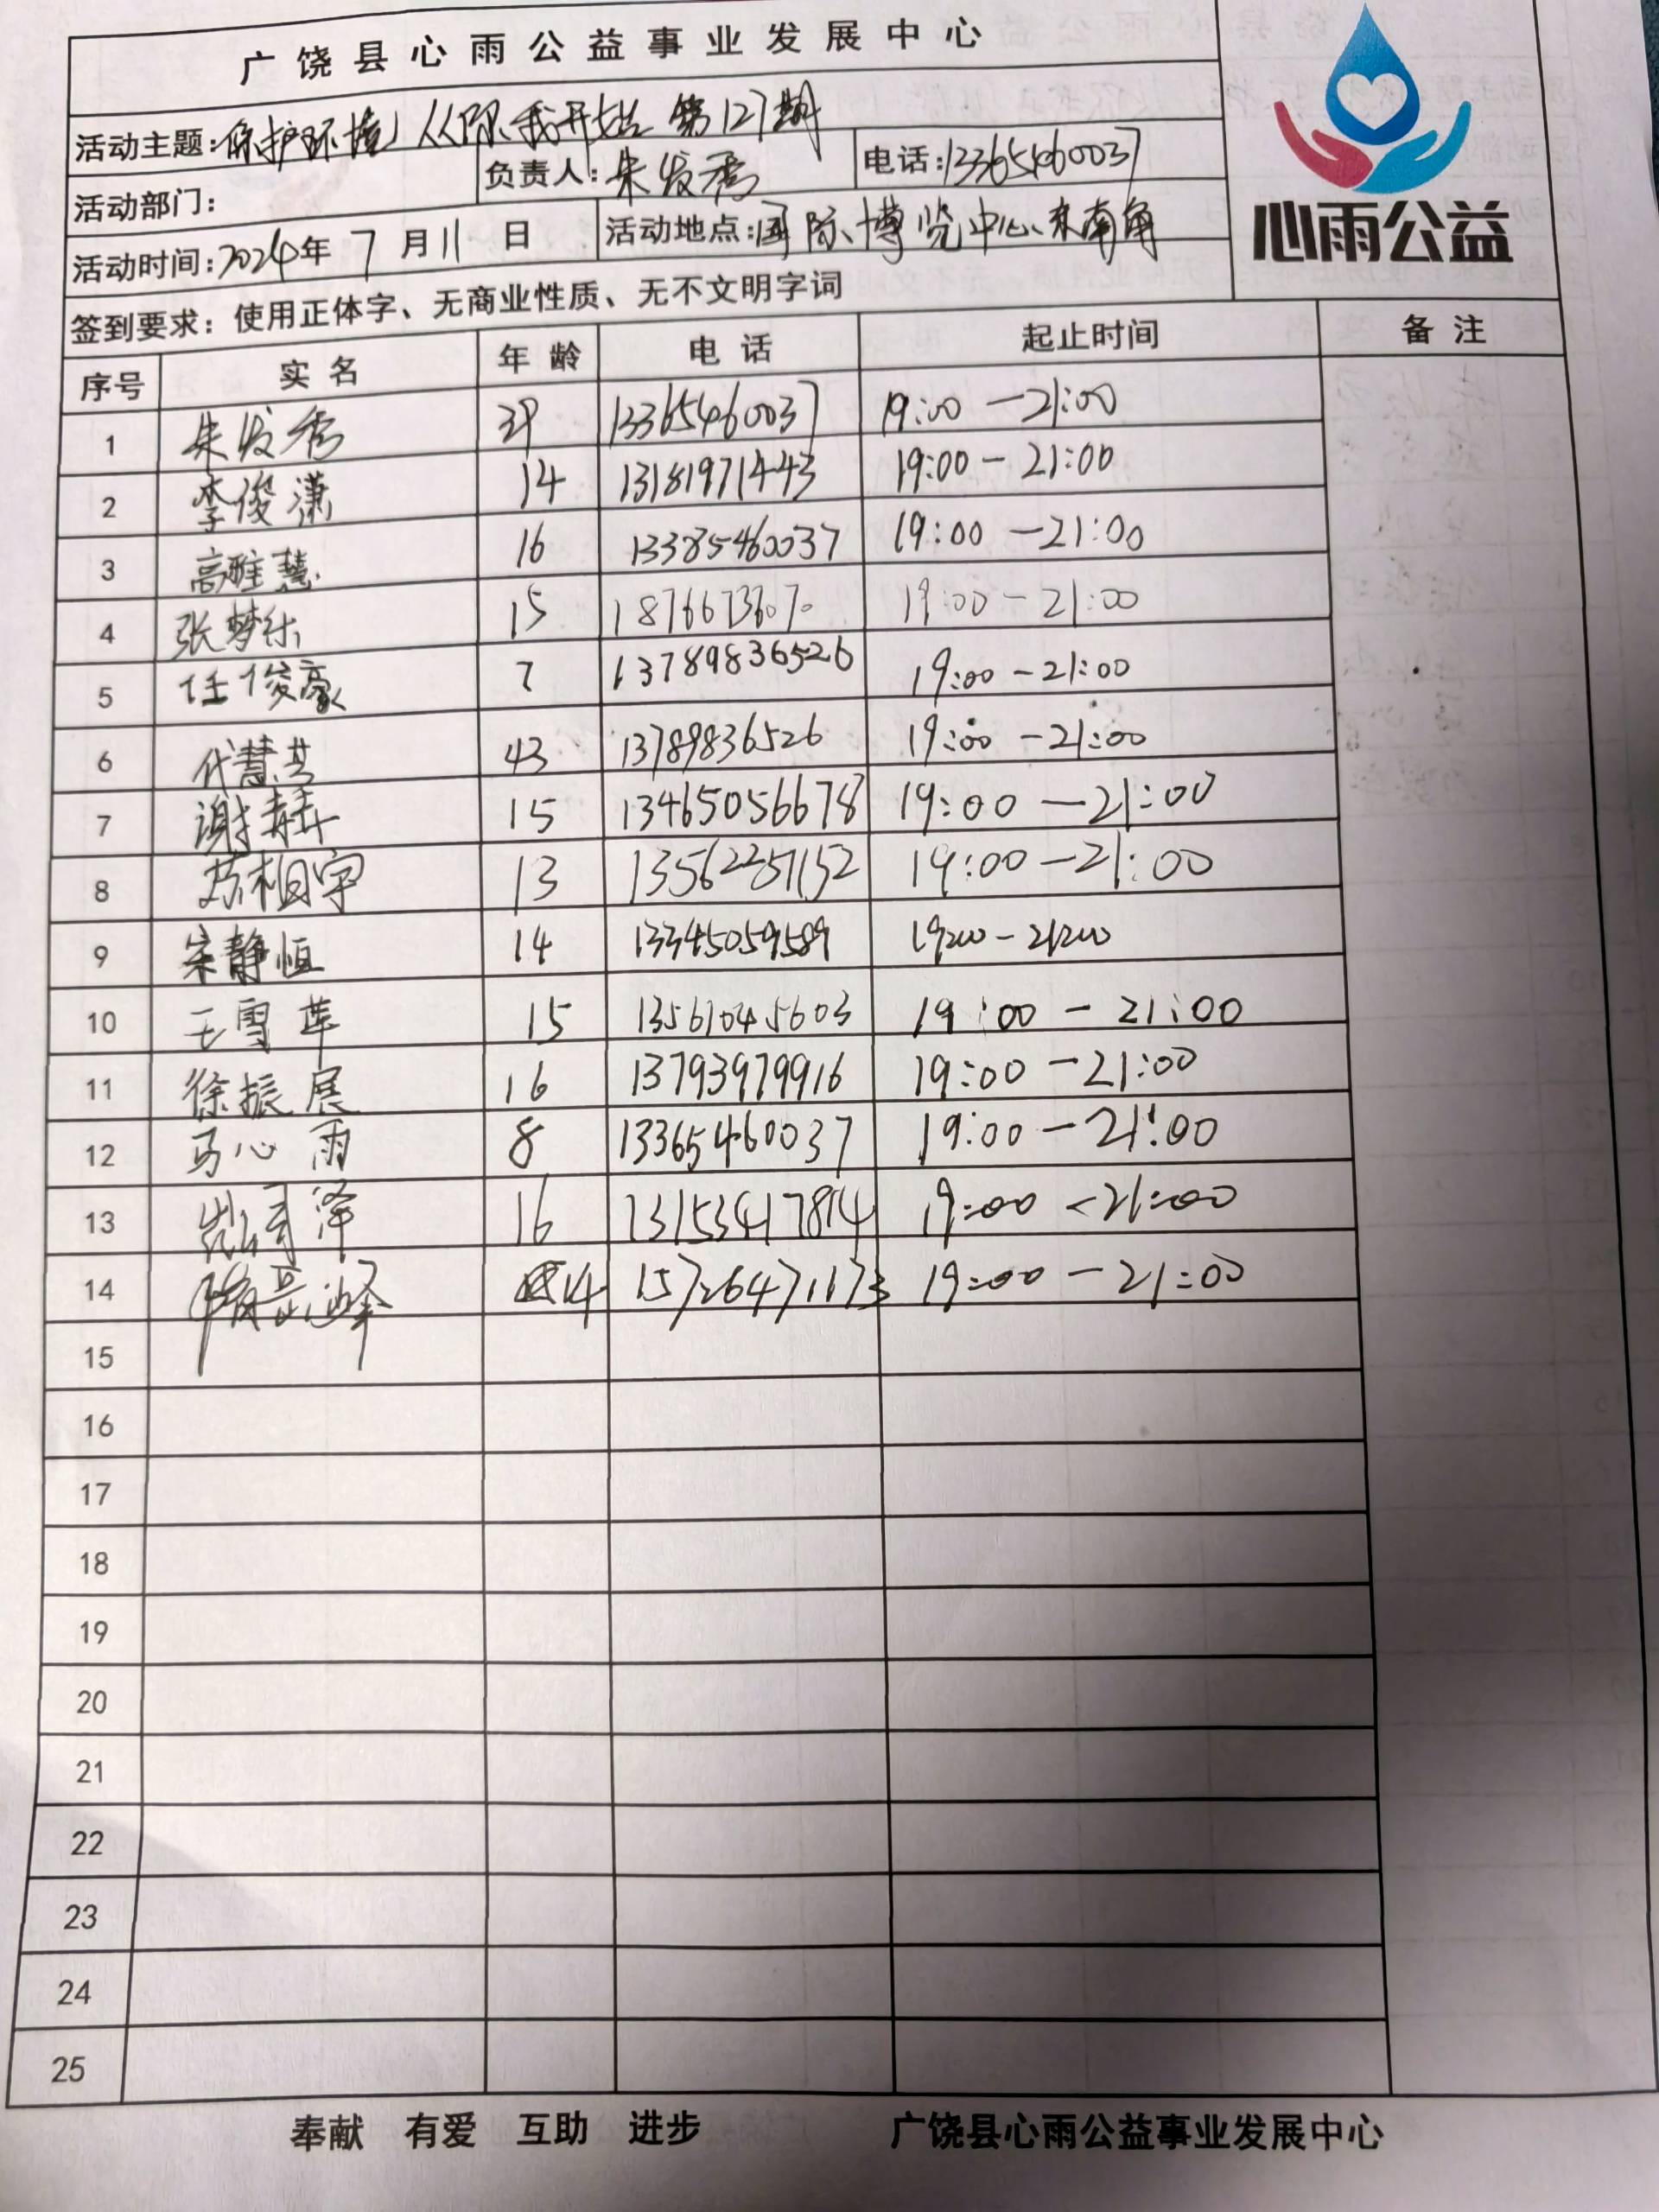 广饶县心雨公益事业发展中心
心雨公益
活动主题:保护环境 从你我开始 第127期
活动部门: 负责人:朱发秀 电话:13365460037
活动时间:2024年7月11日 活动地点:国际博览中心东南角
签到要求:使用正体字、无商业性质、无不文明字词
序号 实名 年龄 电话 起止时间 备注
1 朱发秀 39 13365460037 19:00-21:00
2 李俊潇 14 13181971443 19:00-21:00
3 高雅慧 16 13385460037 19:00-21:00
4 张梦乐 15 18766736070 19:00-21:00
5 任俊豪 7 13789836526 19:00-21:00
6 代慧芸 43 13789836526 19:00-21:00
7 谢 15 13465056678 19:00-21:00
8 相宇 13 13562287152 19:00-21:00
9 宋静恒 14 13345059589 19:00-21:00
10 王雪莲 15 13561045603 19:00-21:00
11 徐振展 16 13793979916 19:00-21:00
12 马心雨 8 13365460037 19:00-21:00
13 泽 16 13153417814 19:00-21:00
14 隋 峰 14 15726471173 19:00-21:00
15
16
17
18
19
20
21
22
23
24
25
奉献 有爱 互助 进步 广饶县心雨公益事业发展中心